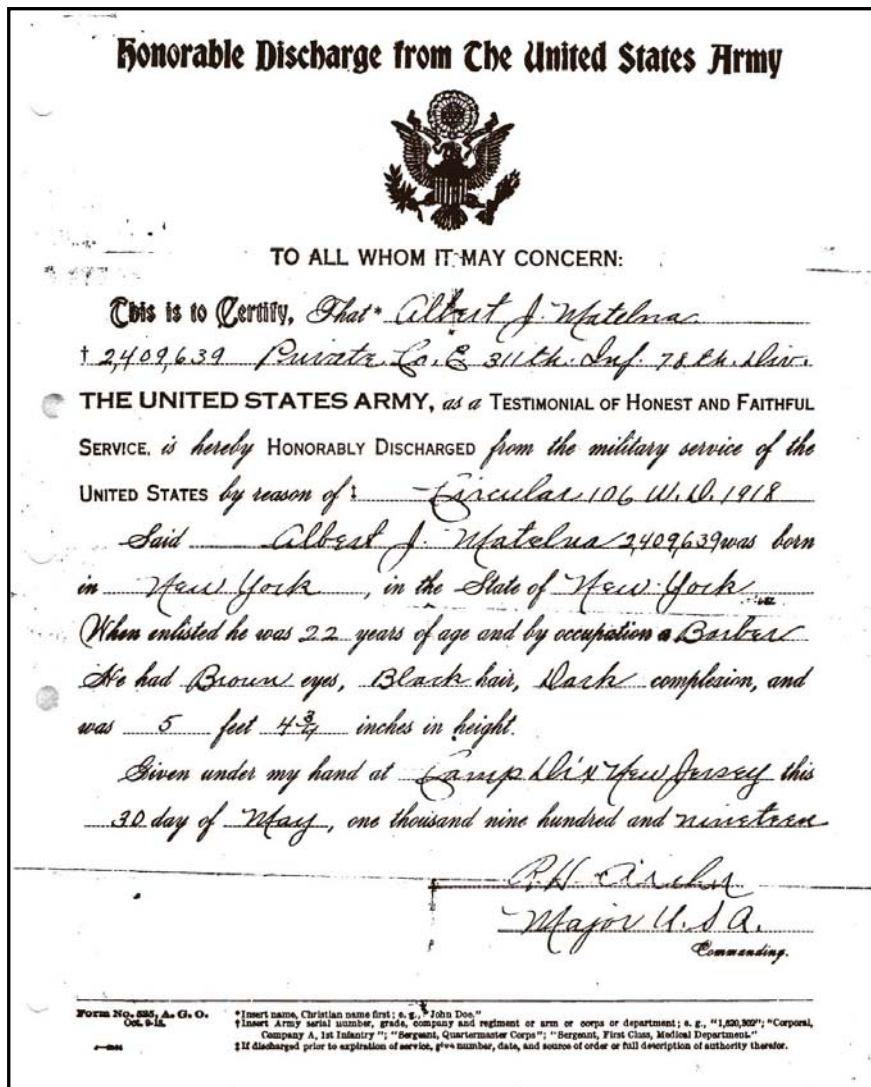 Honorable Discharge from The United States Army
TO ALL WHOM IT MAY CONCERN:
This is to Certify, That* Albert J. Matelna
† 2,409,639 Private Co. E 311th. Inf. 78th. Div.
THE UNITED STATES ARMY, as a TESTIMONIAL OF HONEST AND FAITHFUL
SERVICE, is hereby HONORABLY DISCHARGED from the military service of the
UNITED STATES by reason of ‡ Circular 106 W.D. 1918
Said Albert J. Matelna 2,409,639 was born
in New York, in the State of New York
When enlisted he was 22 years of age and by occupation a Barber
He had Brown eyes, Black hair, Dark complexion, and
was 5 feet 4 3/4 inches in height.
Given under my hand at Camp Dix New Jersey this
30 day of May, one thousand nine hundred and nineteen
R.H.
Major U.S.A.
Commanding.
Form No. 525, A. G. O.
Oct. 9-18.
*Insert name, Christian name first; e. g., "John Doe."
†Insert Army serial number, grade, company and regiment or arm or corps or department; e. g., "1,620,302"; "Corporal,
Company A, 1st Infantry"; "Sergeant, Quartermaster Corps"; "Sergeant, First Class, Medical Department."
‡If discharged prior to expiration of service, give number, date, and source of order or full description of authority therefor.